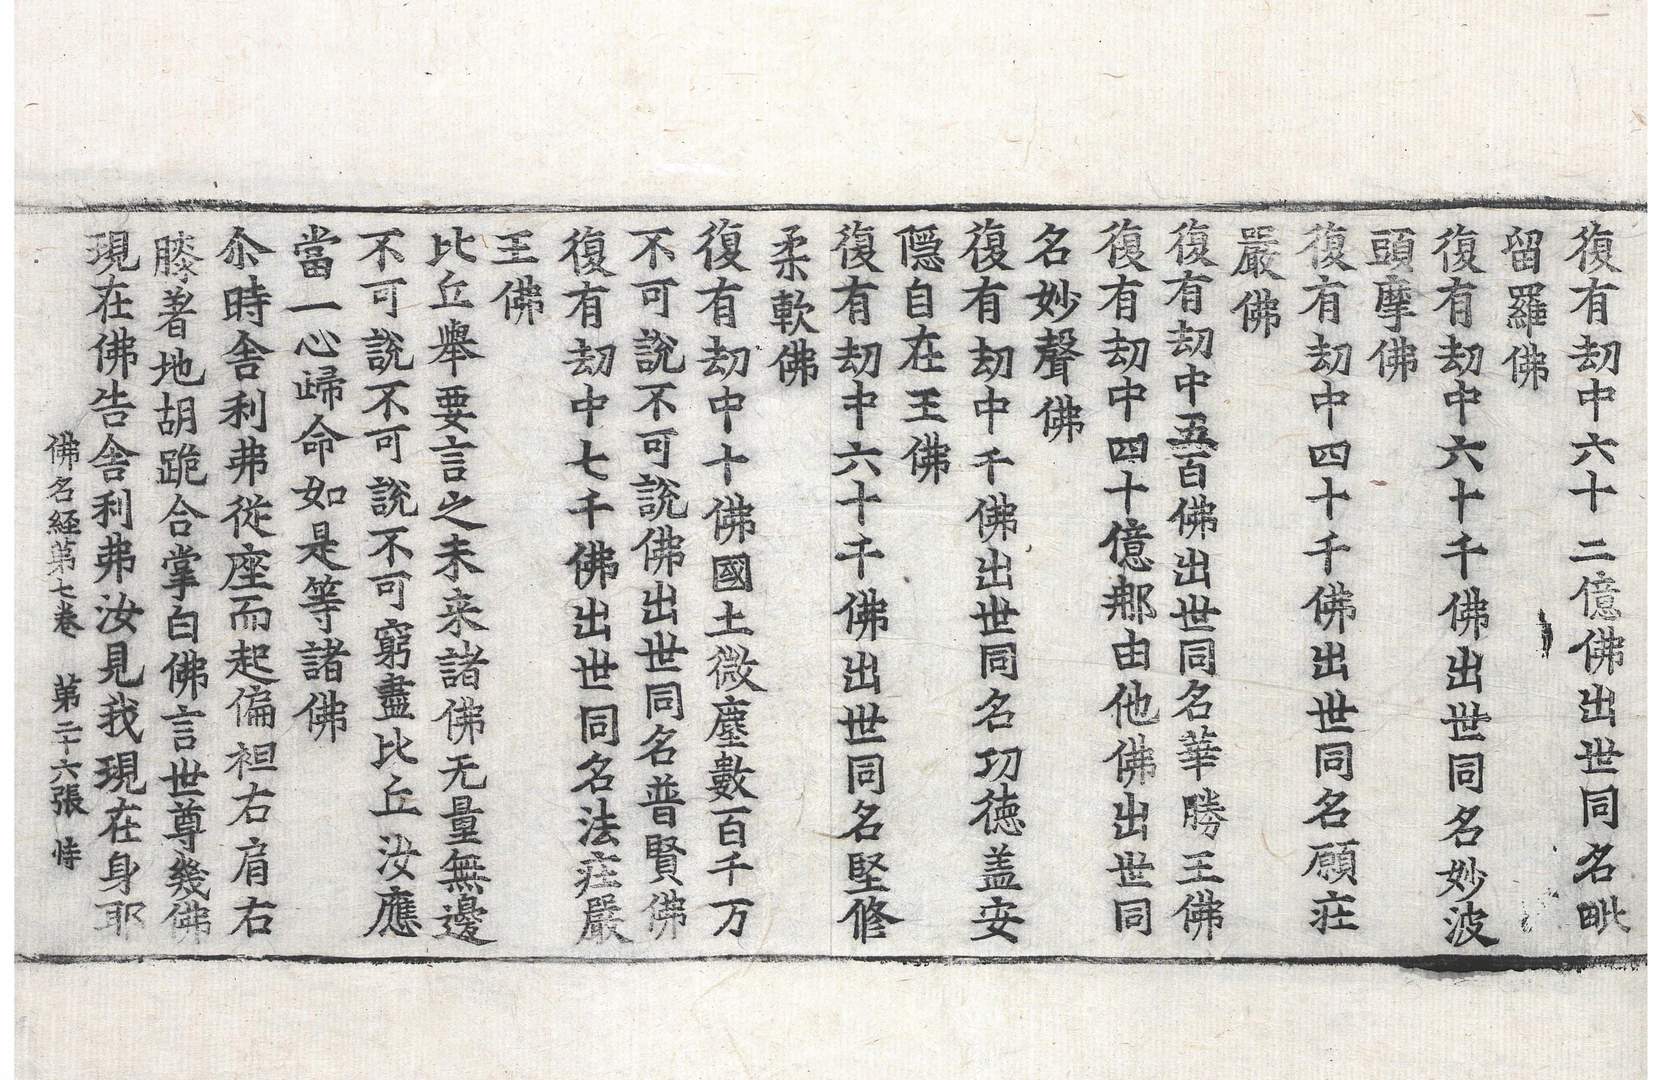 復有刼中六十二億佛出世同名毗
留羅佛
復有刼中六十千佛出世同名妙波
頭摩佛
復有刼中四十千佛出世同名願庄
嚴佛
復有刼中五百佛出世同名華勝王佛
復有刼中四十億那由他佛出世同
名妙聲佛
復有刼中千佛出世同名功徳盖安
隠自在王佛
復有刼中六十千佛出世同名堅修
柔軟佛
復有刼中十佛國土微塵數百千万
不可說不可說佛出世同名普賢佛
復有刼中七千佛出世同名法庄嚴
王佛
比丘舉要言之未来諸佛无量無邊
不可說不可說不可窮盡比丘汝應
當一心歸命如是等諸佛
尒時舎利弗從座而起偏袒右肩右
膝著地胡跪合掌白佛言世尊幾佛
現在佛告舎利弗汝見我現在身耶
佛名経第七卷 第二十六張 恃